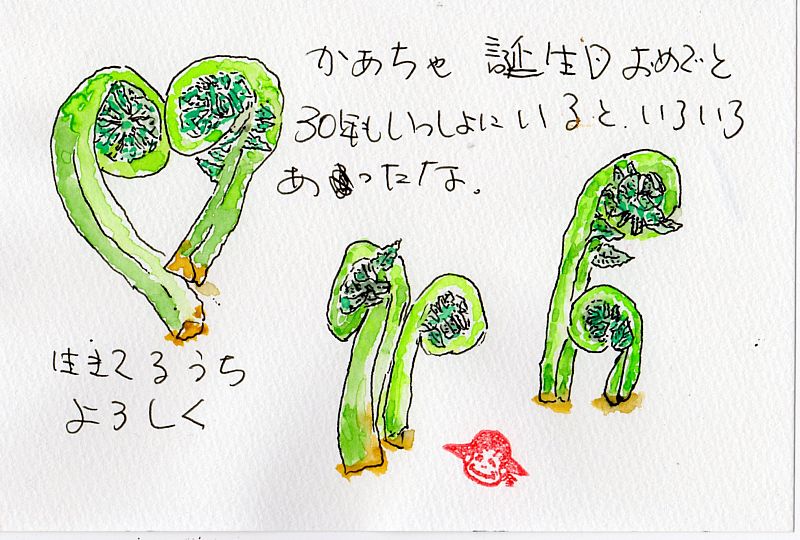 かあちゃ 誕生日 おめでと
30年もいっしょに いると、いろいろ
あったな。
生きてるうち
よろしく